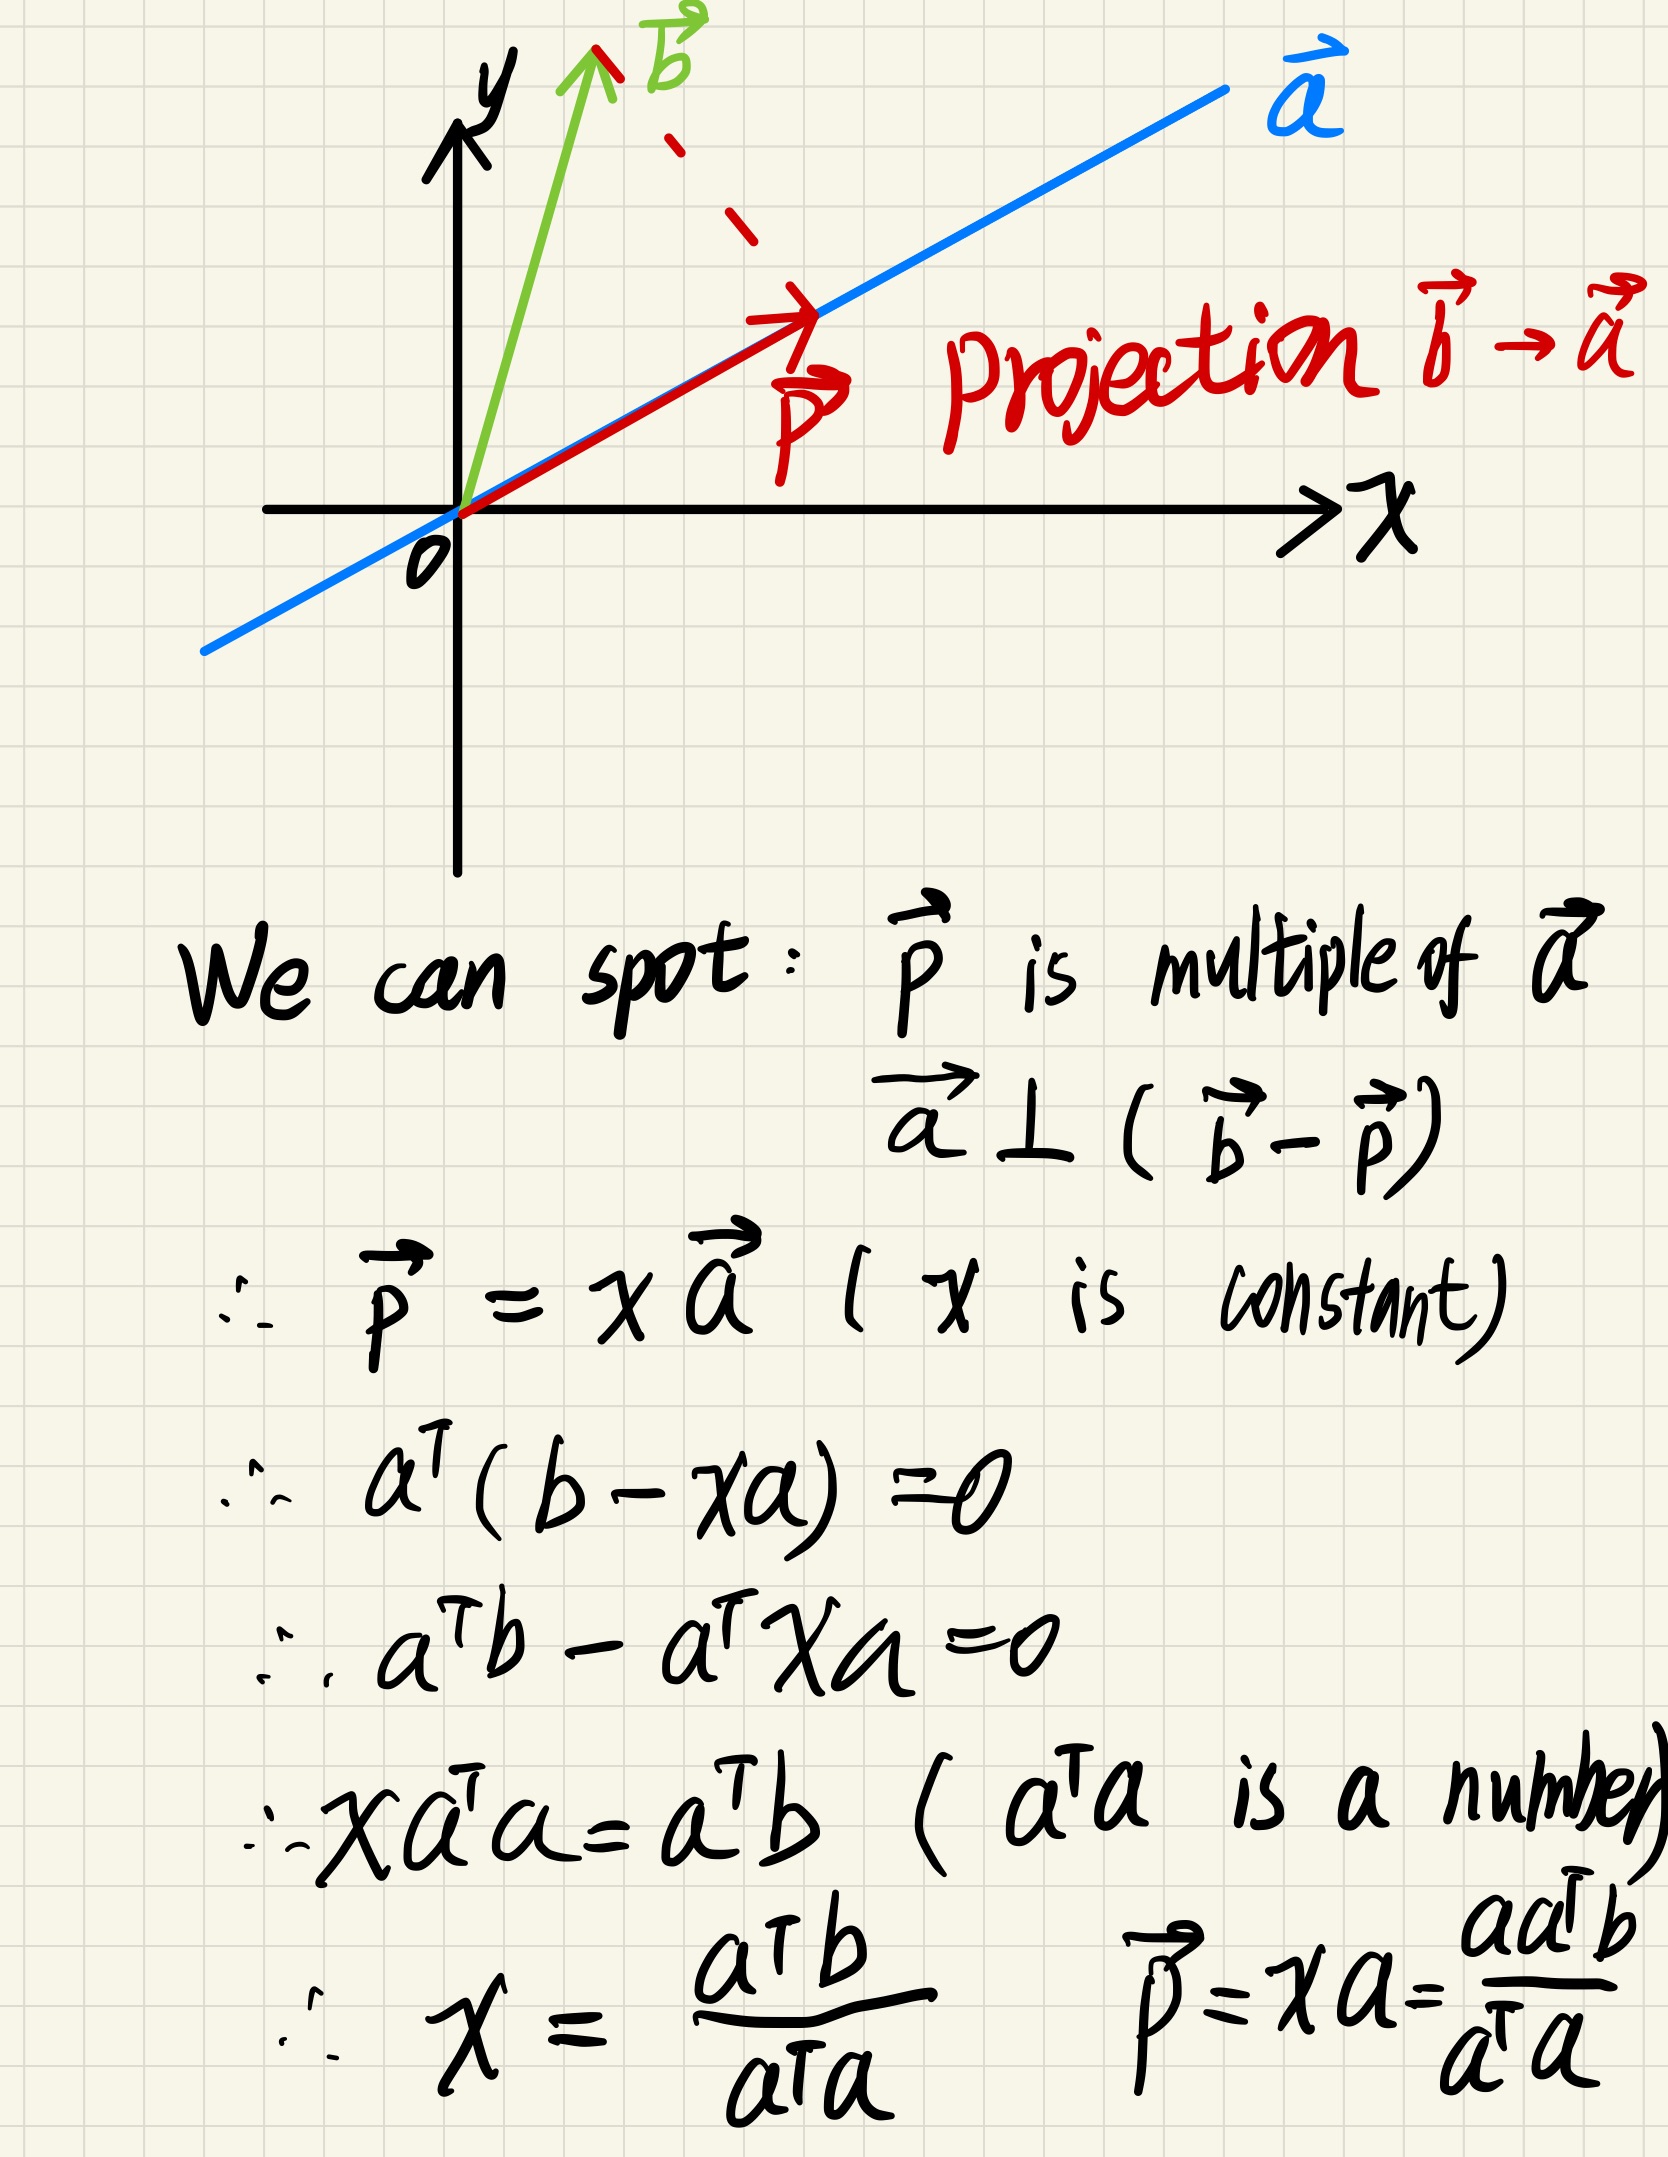 b⃗
y
a⃗
p⃗ projection b⃗ → a⃗
x
0
We can spot: p⃗ is multiple of a⃗
a⃗ ⊥ (b⃗ - p⃗)
∴ p⃗ = x a⃗ (x is constant)
∴ aᵀ(b - xa) = 0
∴ aᵀb - aᵀxa = 0
∴ xaᵀa = aᵀb (aᵀa is a number)
∴ x = aᵀb / aᵀa p⃗ = xa = aaᵀb / aᵀa